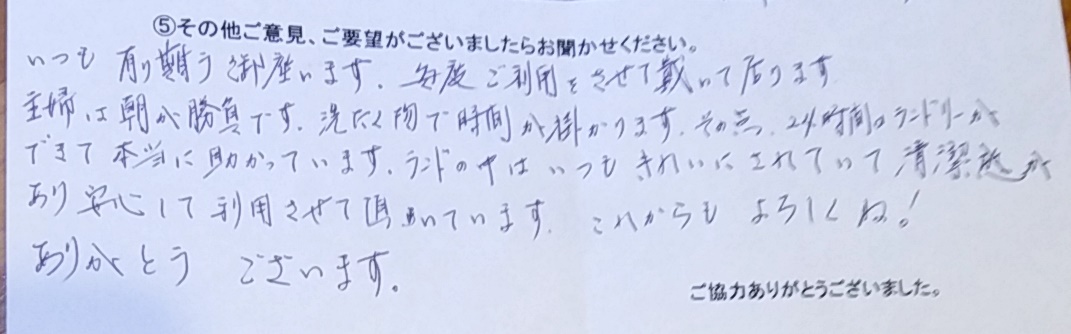 ⑤その他ご意見、ご要望がございましたらお聞かせください。
いつも有り難う御座います。毎度ご利用をさせて戴いて居ります
主婦は朝が勝負です。洗たく物で時間が掛かります。その点、24時間のランドリーが
できて本当に助かっています。ランドの中はいつもきれいにされていて清潔感が
あり安心して利用させて頂いています。これからもよろしくね!
ありがとうございます。
ご協力ありがとうございました。